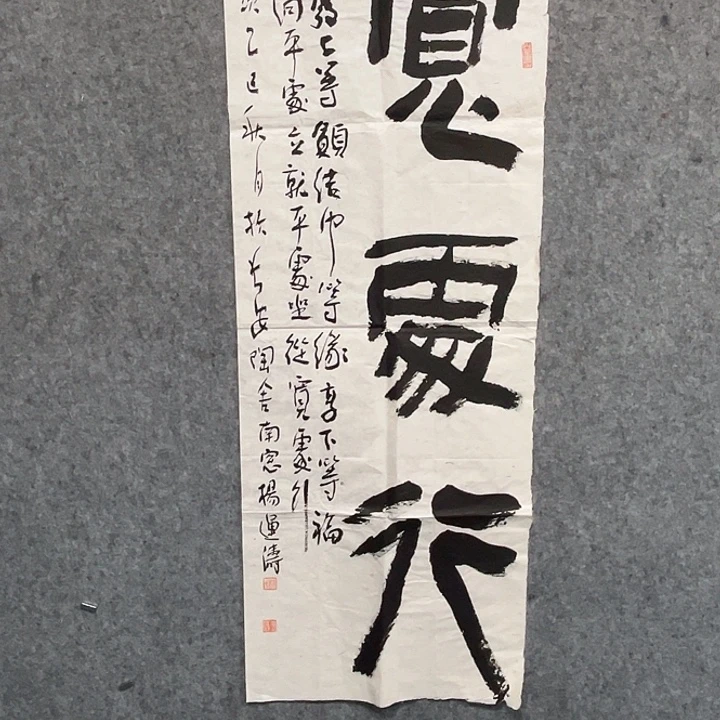 寬處行
上等願結中等緣享下等福
向平處立就平處坐從寬處行
乙巳秋月於長安陶舍南窗楊運濤